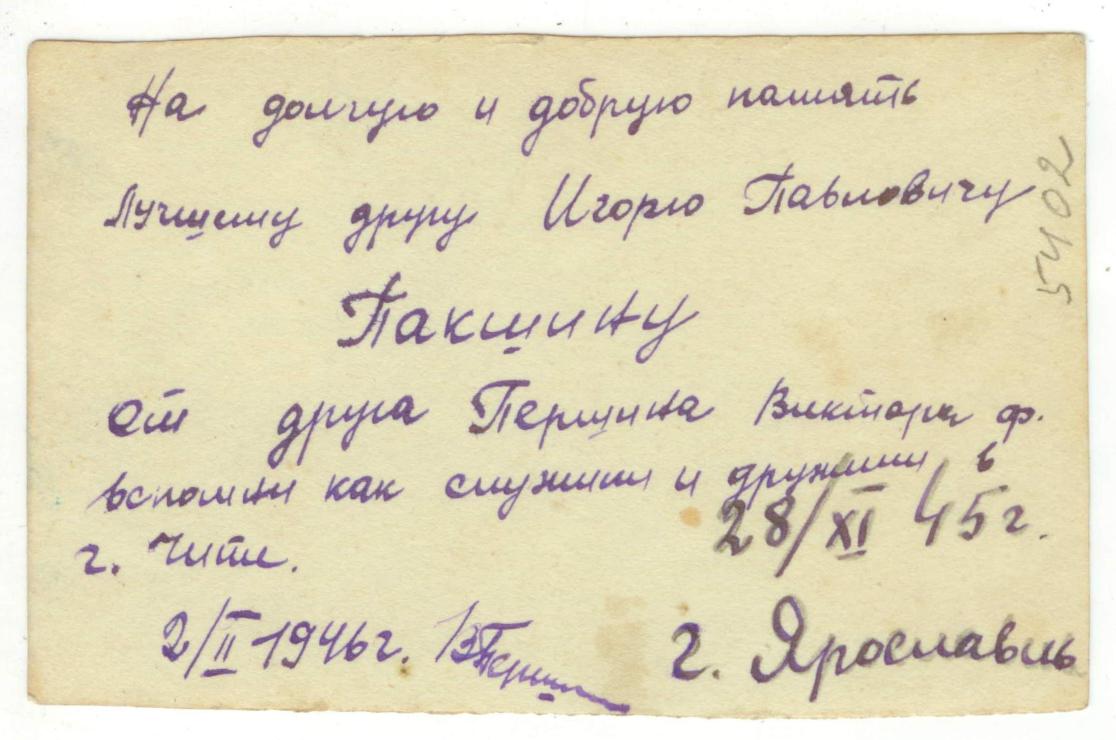 На долгую и добрую память
Лучшему другу Игорю Павловичу
Пакшину
От друга Першина Виктора Ф.
вспомни как служили и дружили в
г. Чите.
28/XI 45г.
2/II 1946г. ВПершин
г. Ярославль
5402